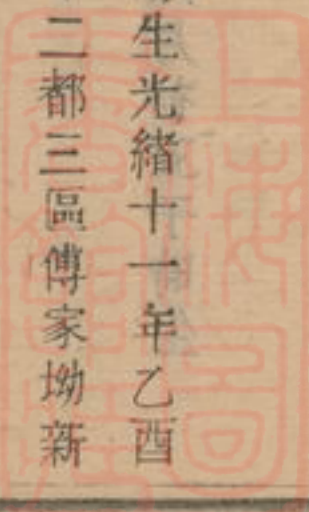 生光緒十一年乙酉
二都三區傅家坳新